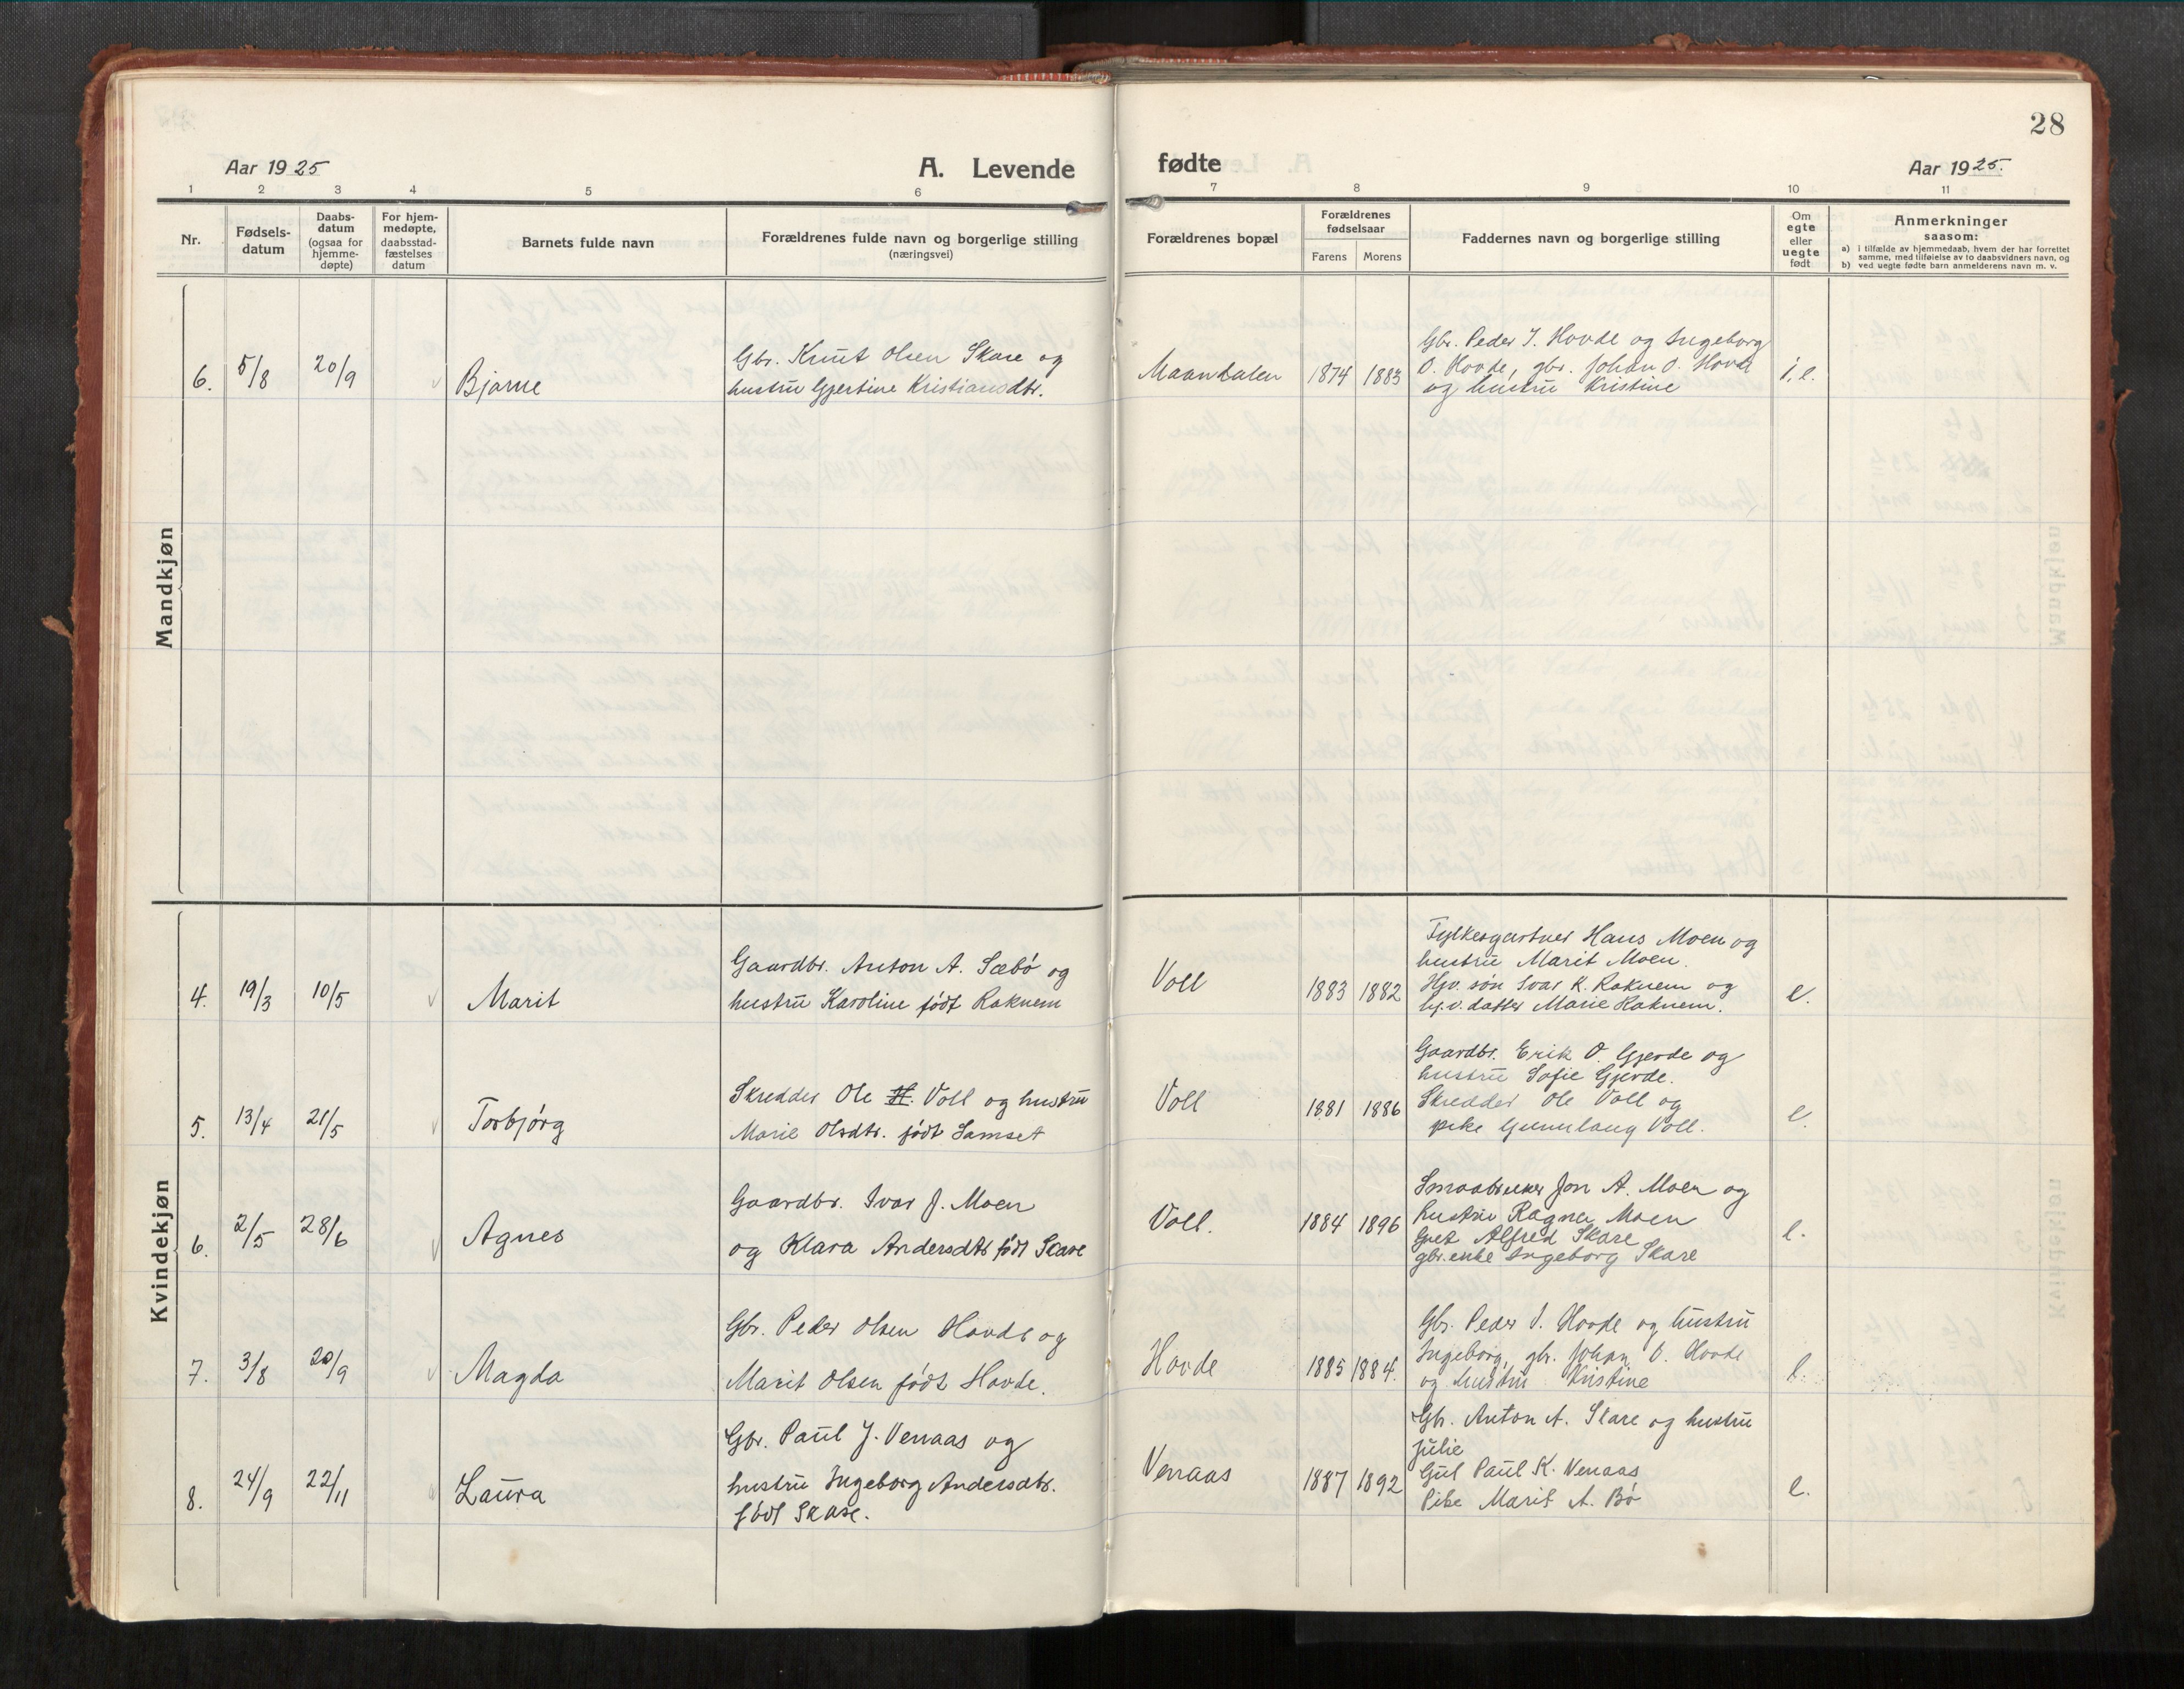 28
Aar 1925
A. Levende
fødte
Aar 1925.
1 2 3 4 5 6 7 8 9 10 11
Nr.
Fødsels-
datum
Daabs-
datum
(ogsaa for
hjemme-
døpte)
For hjem-
medøpte,
daabsstad-
fæstelses
datum
Barnets fulde navn
Forældrenes fulde navn og borgerlige stilling
(næringsvei)
Forældrenes bopæl
Forældrenes
fødselsaar
Farens Morens
Faddernes navn og borgerlige stilling
Om
egte
eller
uegte
født
Anmerkninger
saasom:
a) i tilfælde av hjemmedaab, hvem der har forrettet
samme, med tilføielse av to daabsvidners navn, og
b) ved uegte fødte barn anmelderens navn m. v.
Mandkjøn
6. 5/8 20/9 Bjarne
Gbr. Knut Olsen Skare og
hustru Gjertine Kristiansdtr.
Maandalen 1874 1883
Gbr. Peder J. Hovde og Ingeborg
O. Hovde, gbr. Johan O. Hovde
og hustru Kristine
e.
Kvindekjøn
4. 19/3 10/5 Marit
Gaardbr. Anton A. Sæbö og
hustru Karoline født Raknem
Voll 1883 1882
Fylkesgartner Hans Moen og
hustru Marit Moen.
Hjv. sön Ivar K. Raknem og
hj.v. datter Marie Raknem.
e.
5. 13/4 21/5 Torbjørg
Skredder Ole H. Voll og hustru
Marie Olsdtr. født Samset
Voll 1881 1886
Gaardbr. Erik O. Gjerde og
hustru Sofie Gjerde.
Skredder Ole Voll og
pike Gunnlaug Voll.
e.
6. 2/5 28/6 Agnes
Gaardbr. Ivar J. Moen
og Klara Andersdtr født Skare
Voll. 1884 1896
Smaabruker Jon A. Moen og
hustru Ragna Moen
Alfred Skare
gbr.enke Ingeborg Skare
e.
7. 3/8 20/9 Magda
Gbr. Peder Olsen Hovde og
Marit Olsen født Hovde.
Hovde 1885 1884.
Gbr. Peder J. Hovde og hustru
Ingeborg, gbr. Johan O. Hovde
og hustru Kristine
e.
8. 24/9 22/11 Laura
Gbr. Paul J. Venaas og
hustru Ingeborg Andersdtr.
født Skare.
Venaas 1887 1892
Gbr. Anton A. Skare og hustru
Julie
Paul K. Venaas
Pike Marit A. Bö
e.